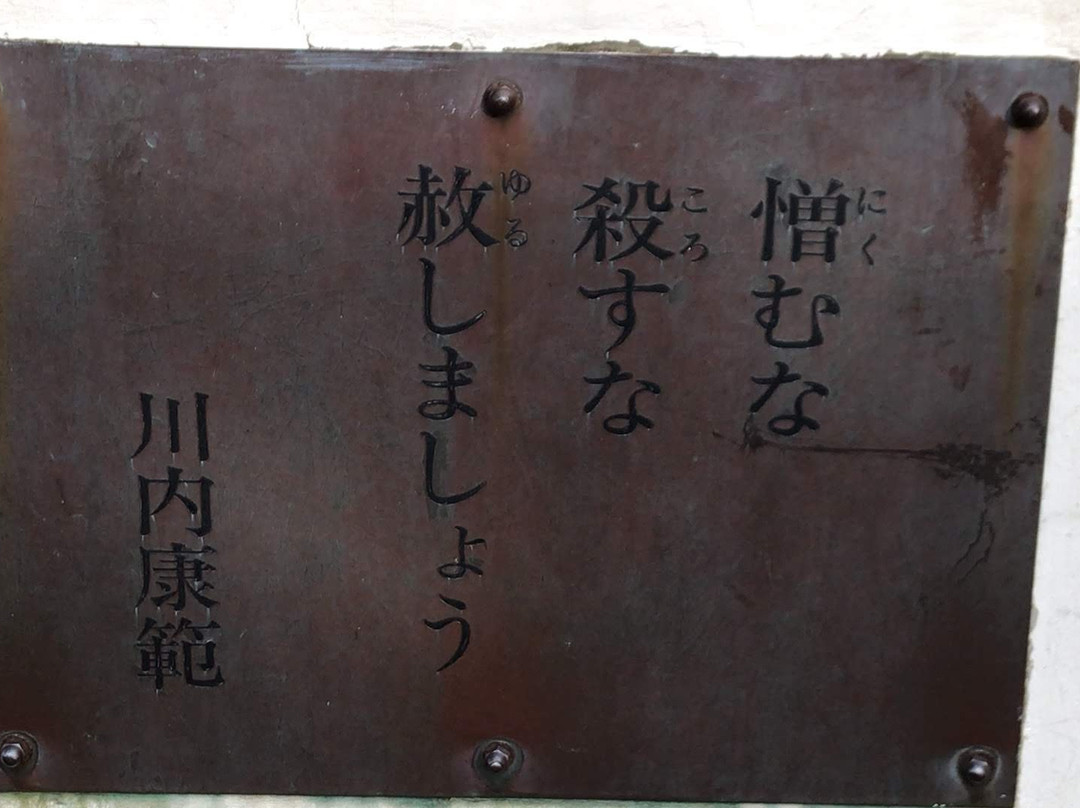 憎むな
にく
殺すな
ころ
赦しましょう
ゆる
川内康範